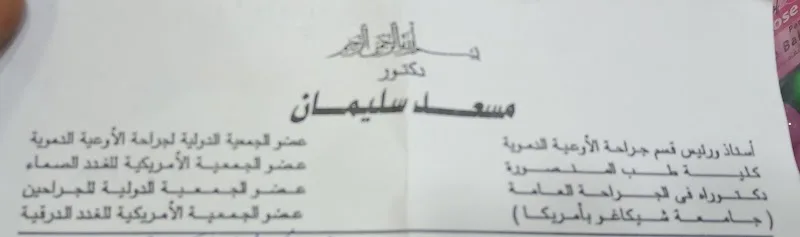 بسم الله الرحمن الرحيم
دكتور
مسعد سليمان
أستاذ ورئيس قسم جراحة الأوعية الدموية
كلية طب المنصورة
دكتوراه فى الجراحة العامة
(جامعة شيكاغو بأمريكا)
عضو الجمعية الدولية لجراحة الأوعية الدموية
عضو الجمعية الأمريكية للغدد الصماء
عضو الجمعية الدولية للجراحين
عضو الجمعية الأمريكية للغدد الدرقية